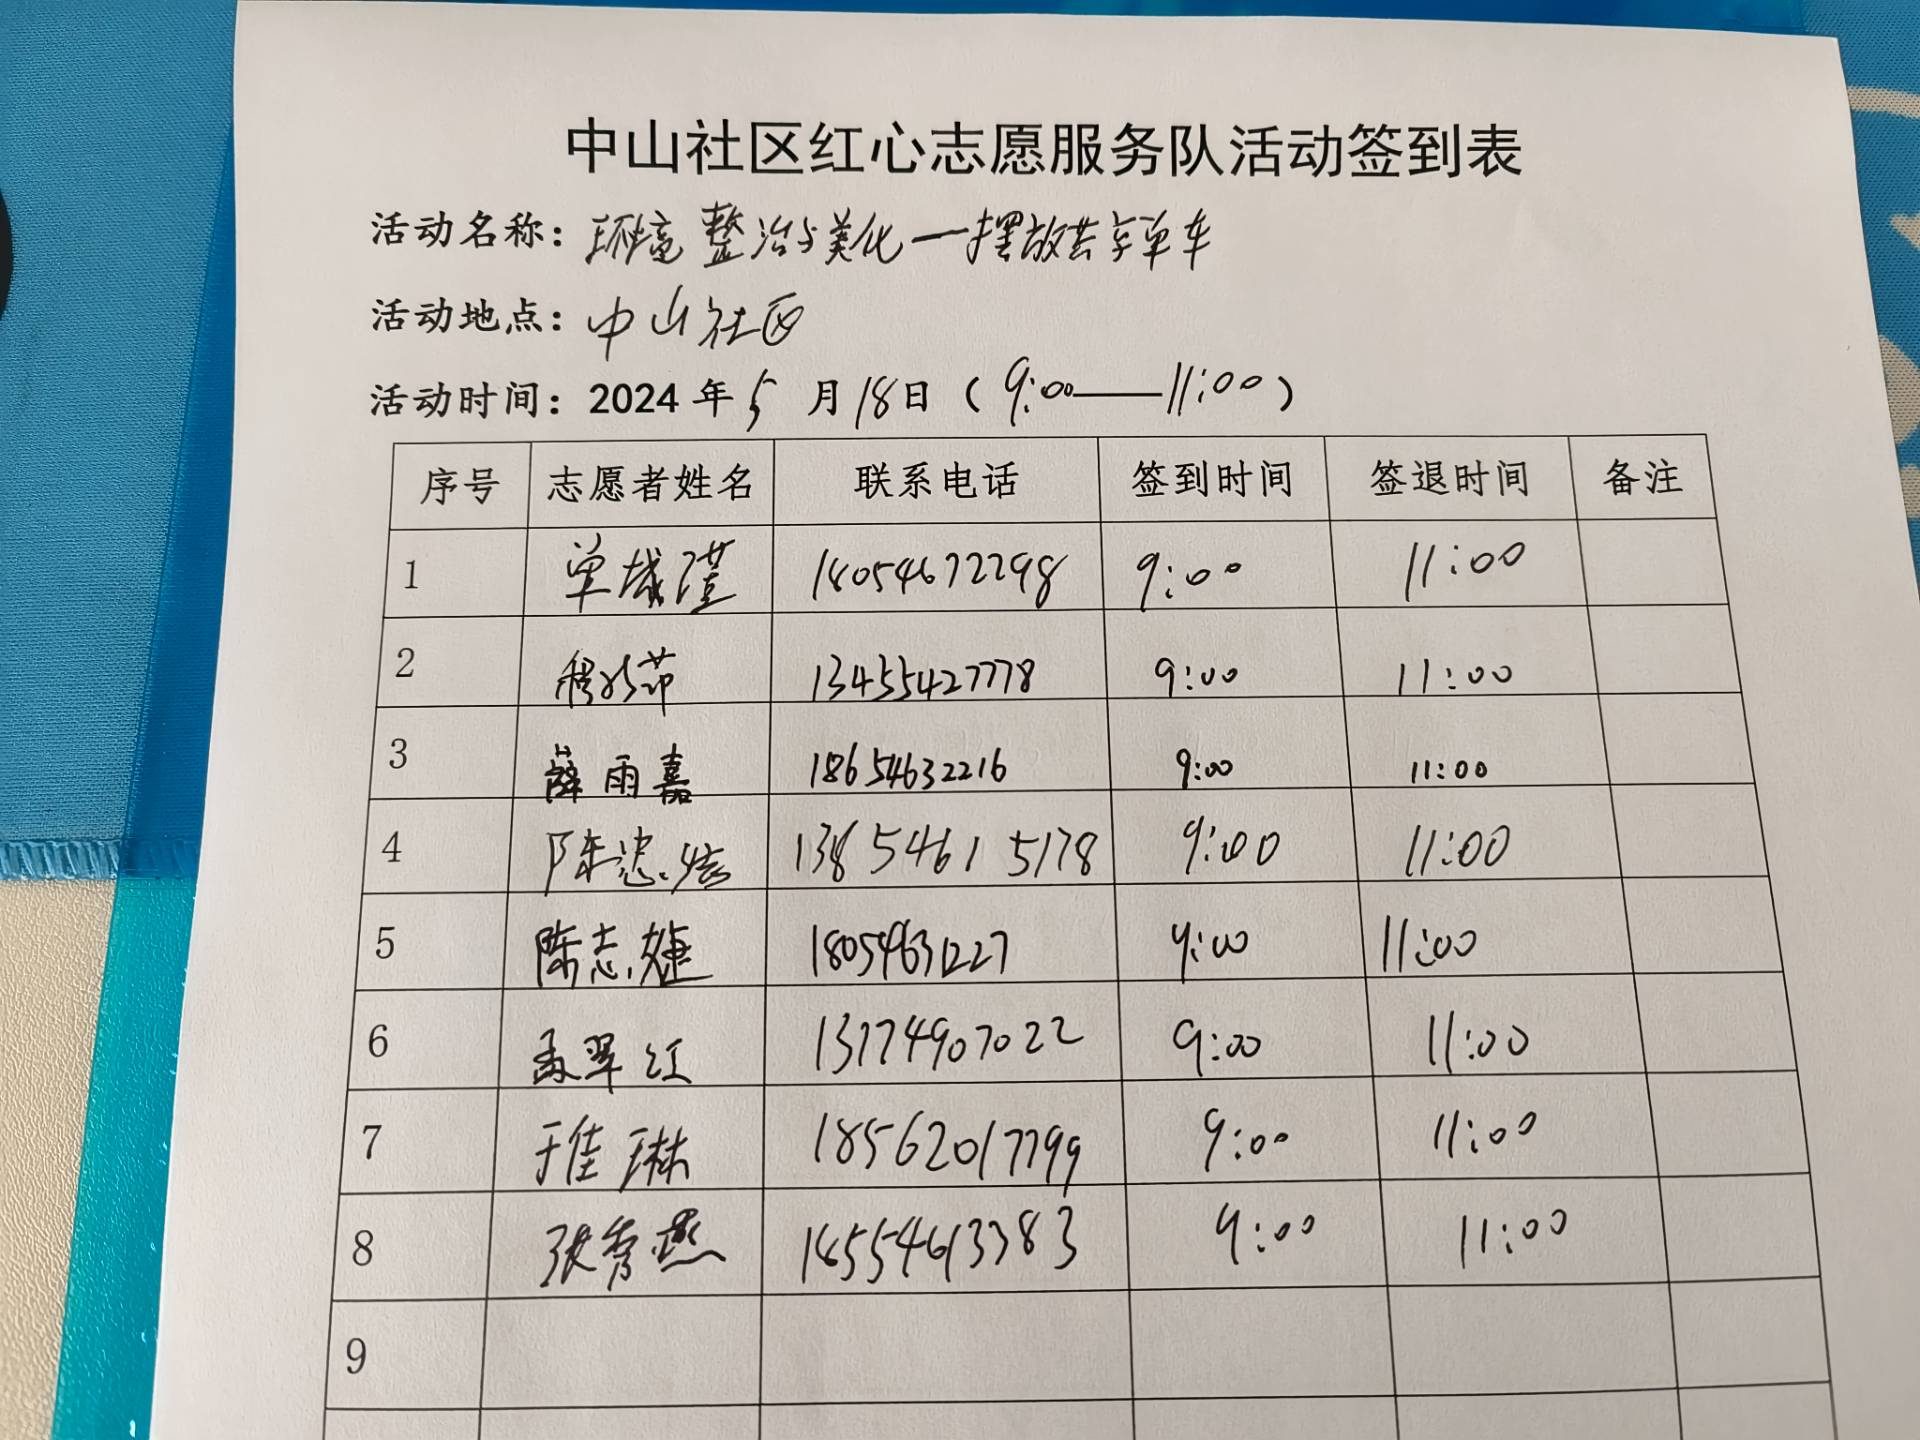 中山社区红心志愿服务队活动签到表
活动名称：环境整治与美化一摆放共享单车
活动地点：中山社区
活动时间：2024年5月18日（9:00——11:00）
序号 志愿者姓名 联系电话 签到时间 签退时间 备注
1 单城滢 18054672298 9:00 11:00
2 13455427778 9:00 11:00
3 薛雨嘉 18654632216 9:00 11:00
4 陈忠 13854615178 9:00 11:00
5 陈志婕 18054631227 9:00 11:00
6 孟翠红 13174907022 9:00 11:00
7 于佳琳 18562017799 9:00 11:00
8 张秀燕 18554613383 9:00 11:00
9